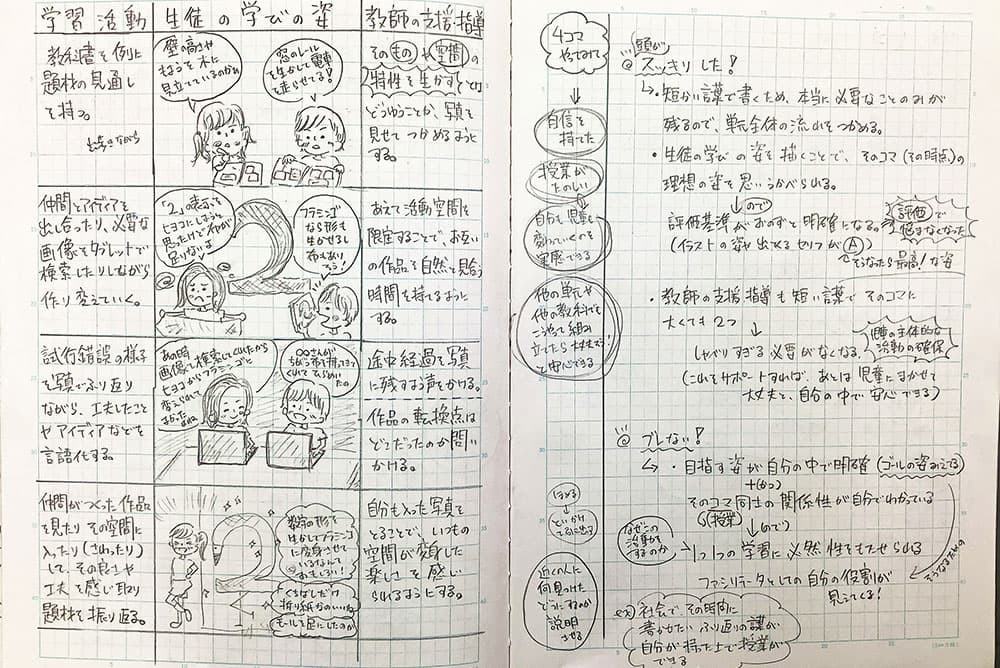 学習活動
生徒の学びの姿
教師の支援・指導
教科書を例に
題材の見通し
を持つ。
壁の高さや
もようを木に
見立てているのかな
窓のレール
を生かして電車
を走らせてる!
そのものや空間の
特性を生かすとは
どうゆうことか、写真を
見せてつかめるように
する。
仲間とアイディアを
出し合ったり、必要な
画像をタブレットで
検索したりしながら
作り変えていく。
「2」の表示を
ヒヨコにしようと
思ったけど
足りないよ
フラミンゴ
なら形も
生かせるし
布もあり
そう!
あえて活動空間を
限定することで、お互い
の作品を自然と見合う
時間を持てるように
する。
試行錯誤の様子
を写真でふり返り
ながら、工夫したこと
やアイディアなどを
言語化する。
あの時
画像を検索してくれたから
ヒヨコからフラミンゴに
変えられて
よかった
○○さんが
途中経過を写真
に残すよう声をかける。
作品の転換点は
どこだったのか問い
かける。
仲間がつくった作品
を見たりその空間に
入ったり(さわったり)
して、その良さや
工夫を感じ取り
題材を振り返る。
数字の形を
生かしてフラミンゴ
に変身させて
いるなんて
おもしろい!
くちばしだけ
折り紙なのいいね
モールを足にしたのか
自分も入った写真を
とることで、いつもの
空間が変身した
楽しさを感じ
られるようにする。
4コマ
やってみて
自信を
持てた
授業が
たのしい
自分も児童も
変わっていくのを
実感できる
他の単元や
他の教科でも
立てたら大丈夫だ!
と安心できる
ほめる
近くの人に
何見つけた
どうにするのか
説明
させる
◎頭が
スッキリした!
↳・短かい言葉で書くため、本当に必要なことのみが
残るので、単元全体の流れをつかめる。
・生徒の学びの姿を描くことで、そのコマ(その時点)の
理想の姿を思いうかべられる。
↓(ので)
評価基準がおのずと明確になる。
(イラストの姿や出てくるセリフがA)
評価で
悩まなくなった
そうなったら最高!な姿
・教師の支援・指導も短い言葉でそのコマに
大くても2つ
↓
しゃべりすぎる必要がなくなる。
主体的な
活動の確保
(これをサポートすれば、あとは児童にまかせて
大丈夫と、自分の中で安心できる)
◎ブレない!
↳・目指す姿が自分の中で明確(ゴールの姿みえてる)
+(かつ)
そのコマ同士の関係性が自分でわかっている
(授業)
↓(ので)
なぜこの
活動を
するのか
1つ1つの学習に必然性をもたせられる
ファシリテーターとしての自分の役割が
見えてくる!
そうなるための
ex)社会で、その時間に
書かせたいふり返りの言葉が
自分が持った上で授業が
できる